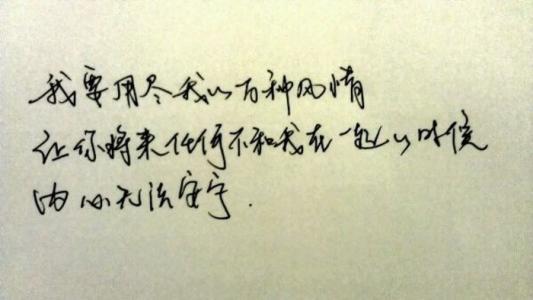 我要用尽我的万种风情
让你将来任何不和我在一起的时候
内心无法安宁.